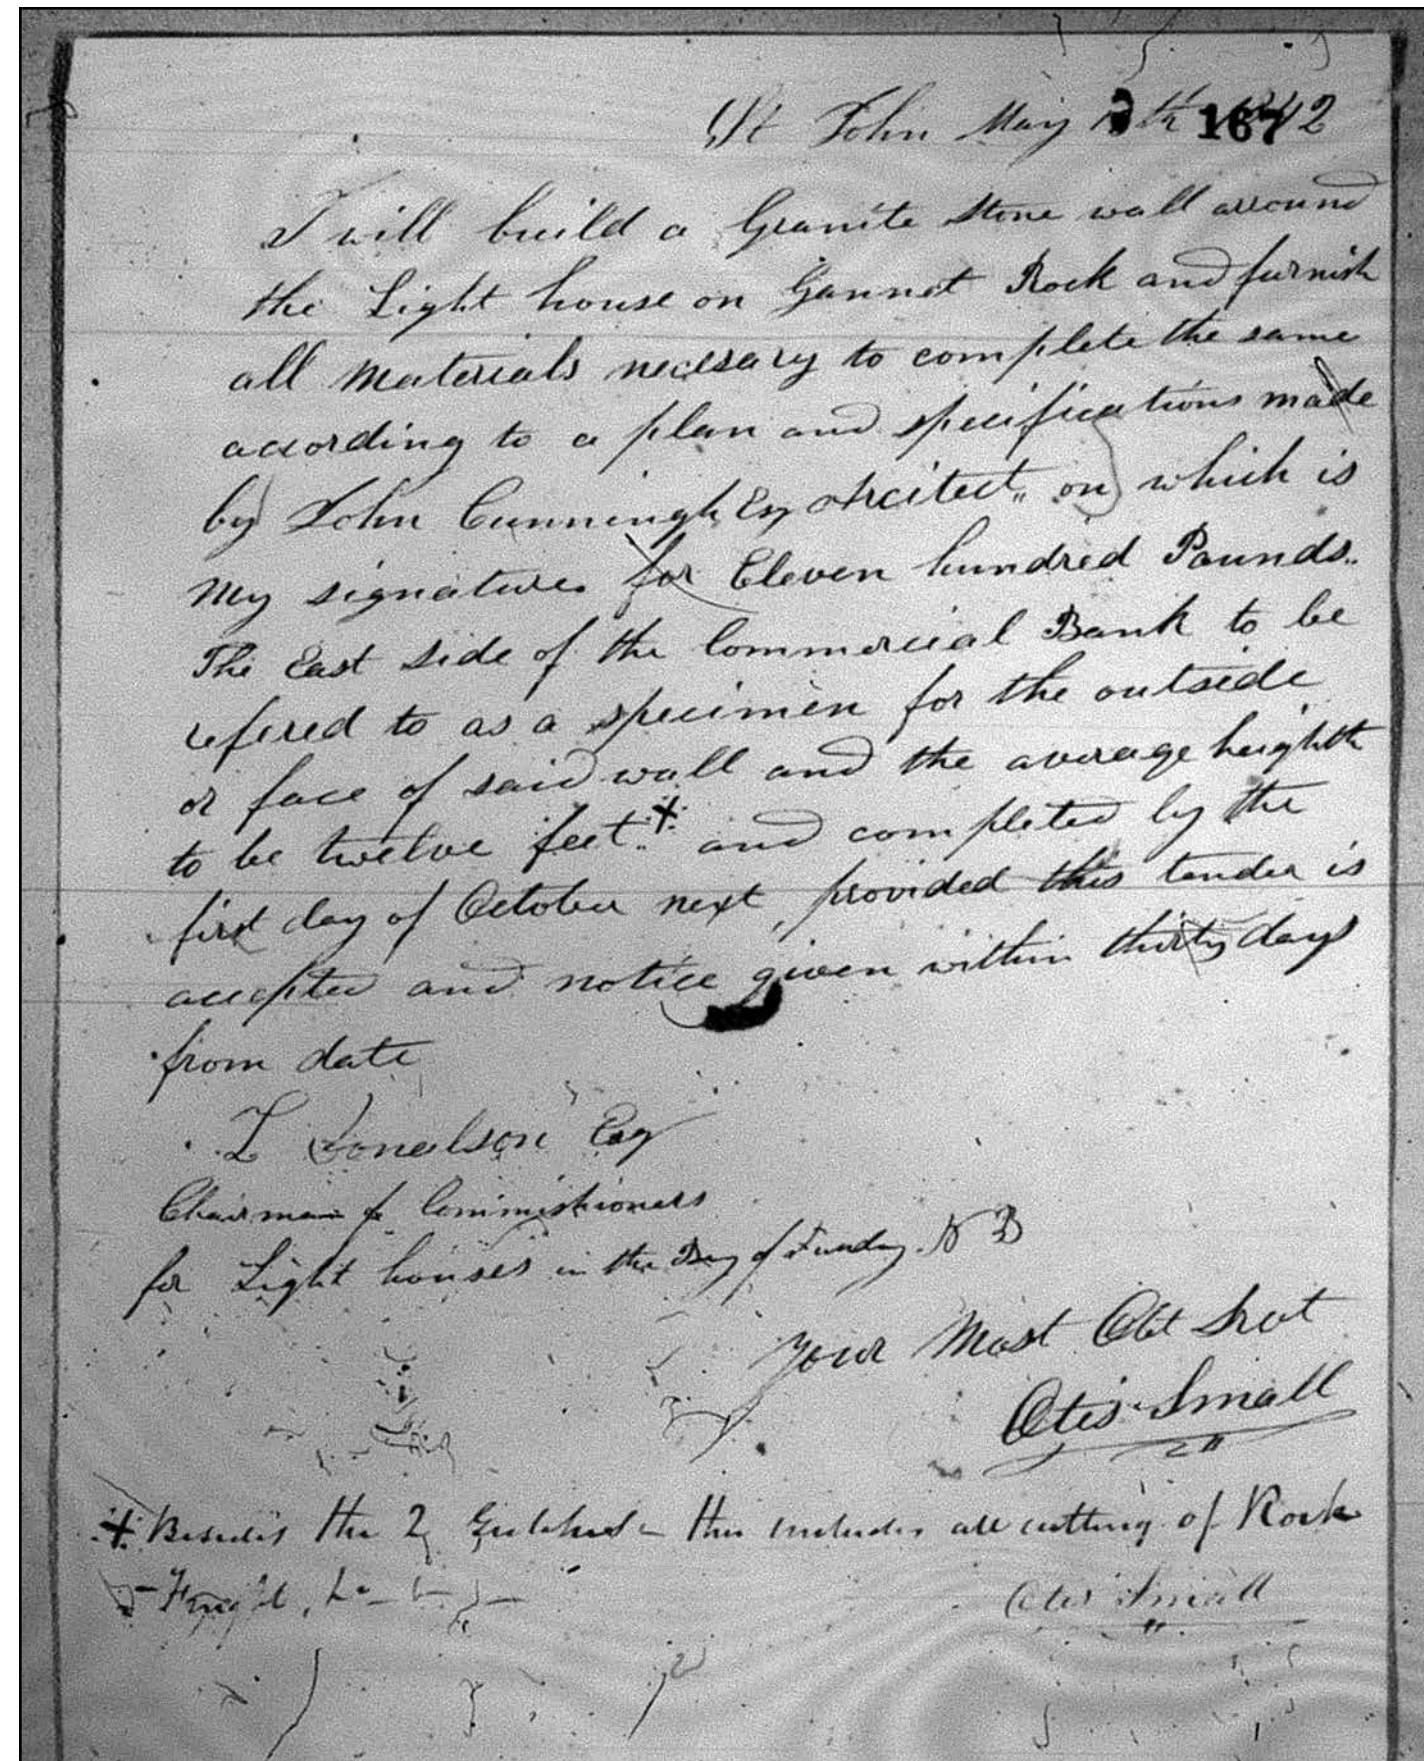 St John May th 167 2
I will build a Granite Stone wall arround
the Light house on Gannet Rock and furnish
all materials necesary to complete the same
acording to a plan and specifications made
by John Cunningh Esq which is
my signature for Eleven hundred Pounds..
The East Side of the Commercial Bank to be
refered to as a specimen for the outside
or face of said wall and the average heighth
to be twelve feet + and completed by the
first day of October next, provided this tender is
accepted and notice given within thirty days
from date
L Donalson Esq
Chairman of Commissioners
for Light houses in the Bay of Fundy N B
your Most Obt Srvt
Otis Small
+ Besides the 2 this includes all cutting of Rock
Otis Small